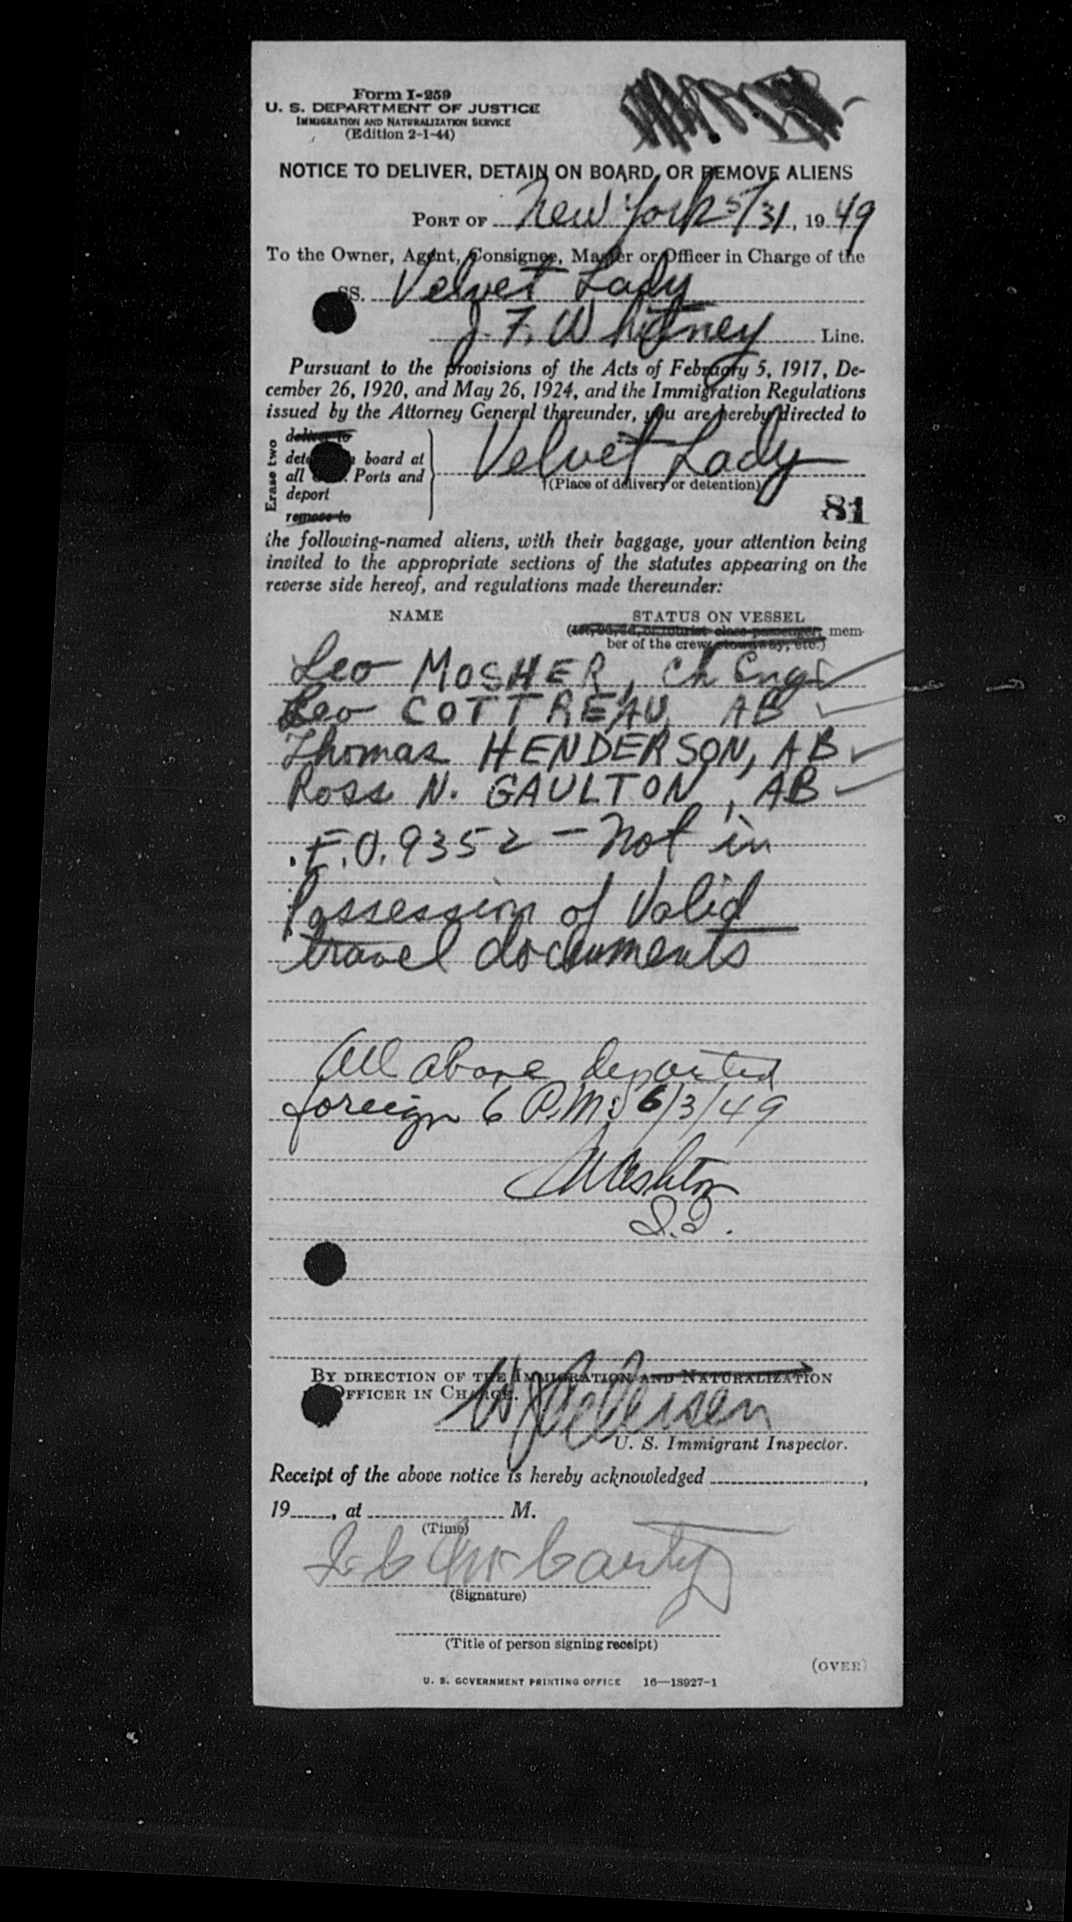 Form I-259
U. S. DEPARTMENT OF JUSTICE
IMMIGRATION AND NATURALIZATION SERVICE
(Edition 2-1-44)
NOTICE TO DELIVER, DETAIN ON BOARD, OR REMOVE ALIENS
PORT OF New York 5/31, 1949
To the Owner, Agent, Consignee, Master or Officer in Charge of the
SS. Velvet Lady
J. F. Whitney Line.
Pursuant to the provisions of the Acts of February 5, 1917, De-
cember 26, 1920, and May 26, 1924, and the Immigration Regulations
issued by the Attorney General thereunder, you are hereby directed to
Erase two
deliver to
board at
all Ports and
deport
remove to
Velvet Lady
(Place of delivery or detention)
81
the following-named aliens, with their baggage, your attention being
invited to the appropriate sections of the statutes appearing on the
reverse side hereof, and regulations made thereunder:
NAME STATUS ON VESSEL
(1st, 2d, 3d, or tourist class passenger, mem-
ber of the crew, stowaway, etc.)
Leo MOSHER, Ch Engr
Leo COTTREAU, AB
Thomas HENDERSON, AB
Ross N. GAULTON, AB
E.O. 9352 - Not in
Possession of Valid
travel documents
All above departed
foreign 6 P.M. 6/3/49
BY DIRECTION OF THE IMMIGRATION AND NATURALIZATION
OFFICER IN CHARGE.
U. S. Immigrant Inspector.
Receipt of the above notice is hereby acknowledged ,
19 , at M.
(Time)
(Signature)
(Title of person signing receipt)
(OVER)
U. S. GOVERNMENT PRINTING OFFICE 16—18927-1